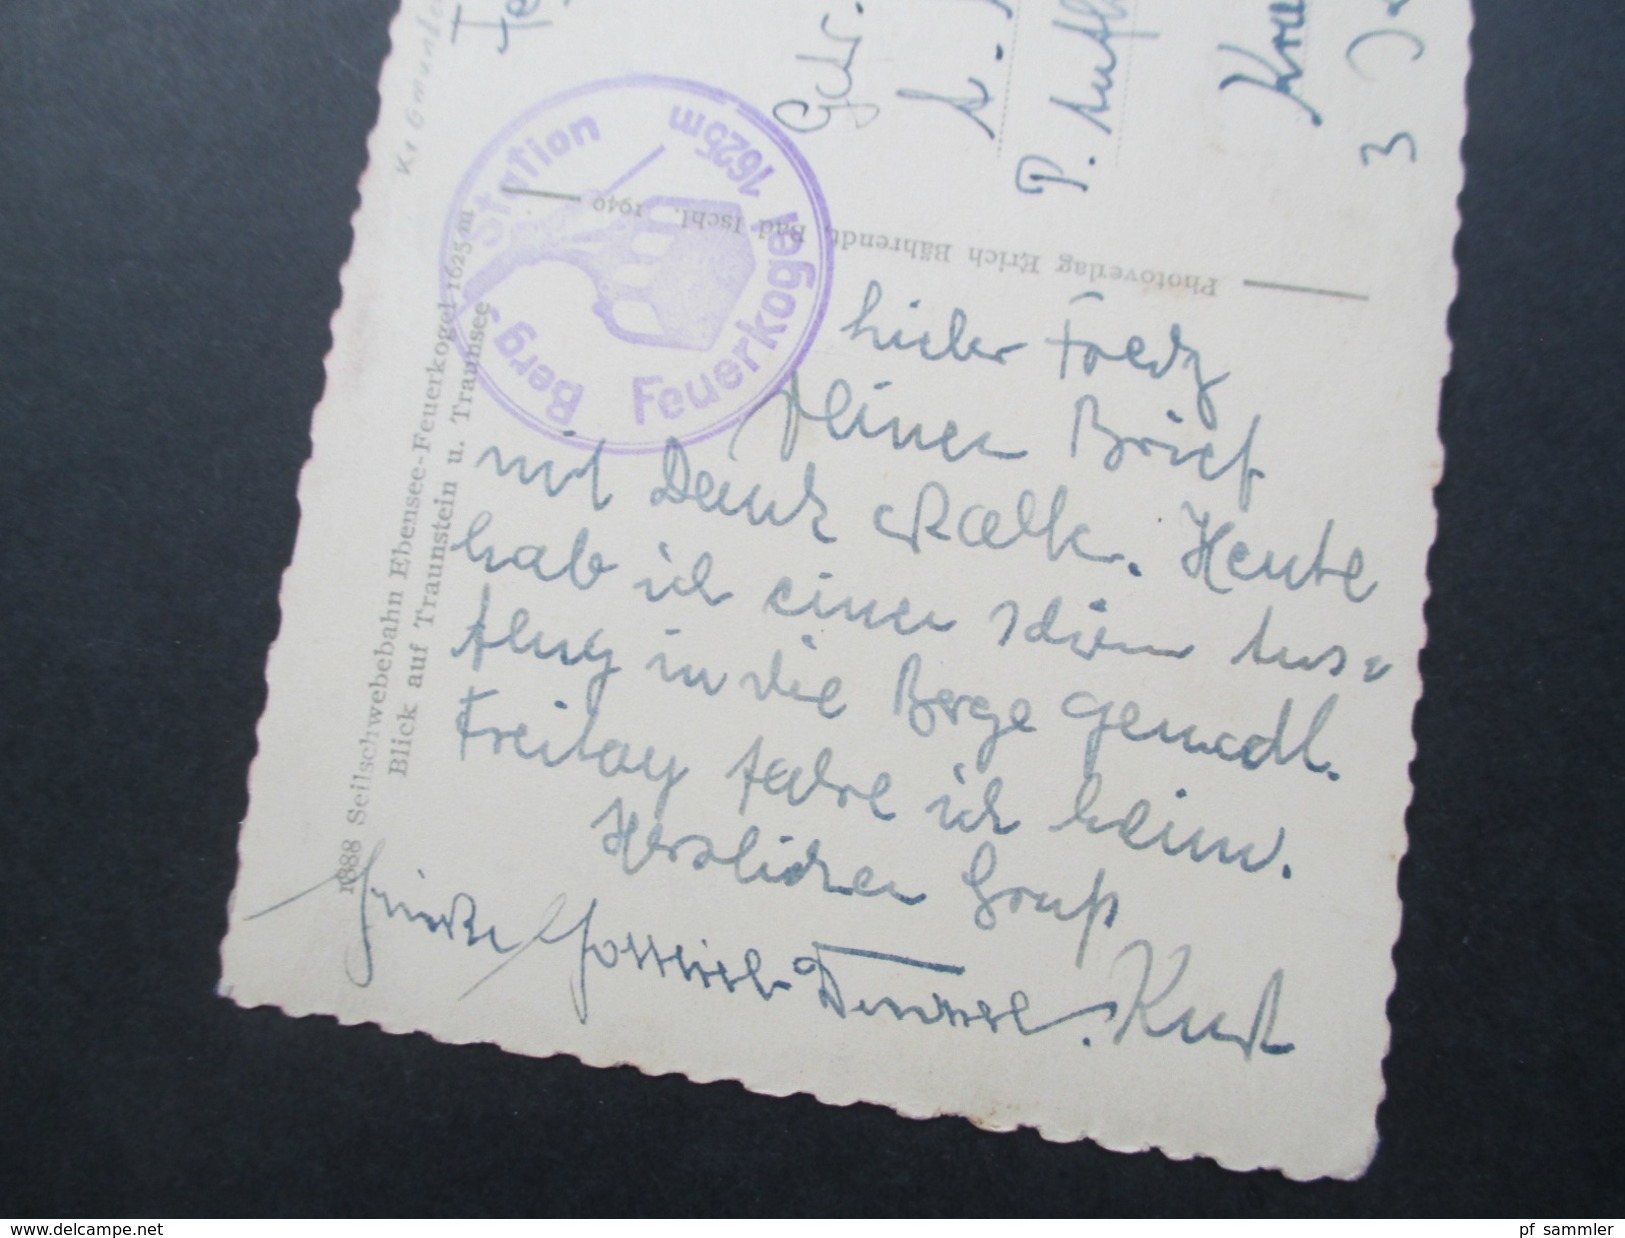 Kr. Gmunden
Gefr.
A.
P.
3
Berg Station
Feuerkogel 1625m
Photoverlag Erich Bährendt, Bad Ischl. 1940
1888 Seilschwebebahn Ebensee-Feuerkogel 1625 m
Blick auf Traunstein u. Traunsee
Lieber Fredy
Deinen Brief
mit Dank erhalt. Heute
hab ich einen schönen Aus=
flug in die Berge gemacht.
Freitag fahre ich heim.
Herzlichen Gruß
Kurt
www.delcampe.net
pf_sammler